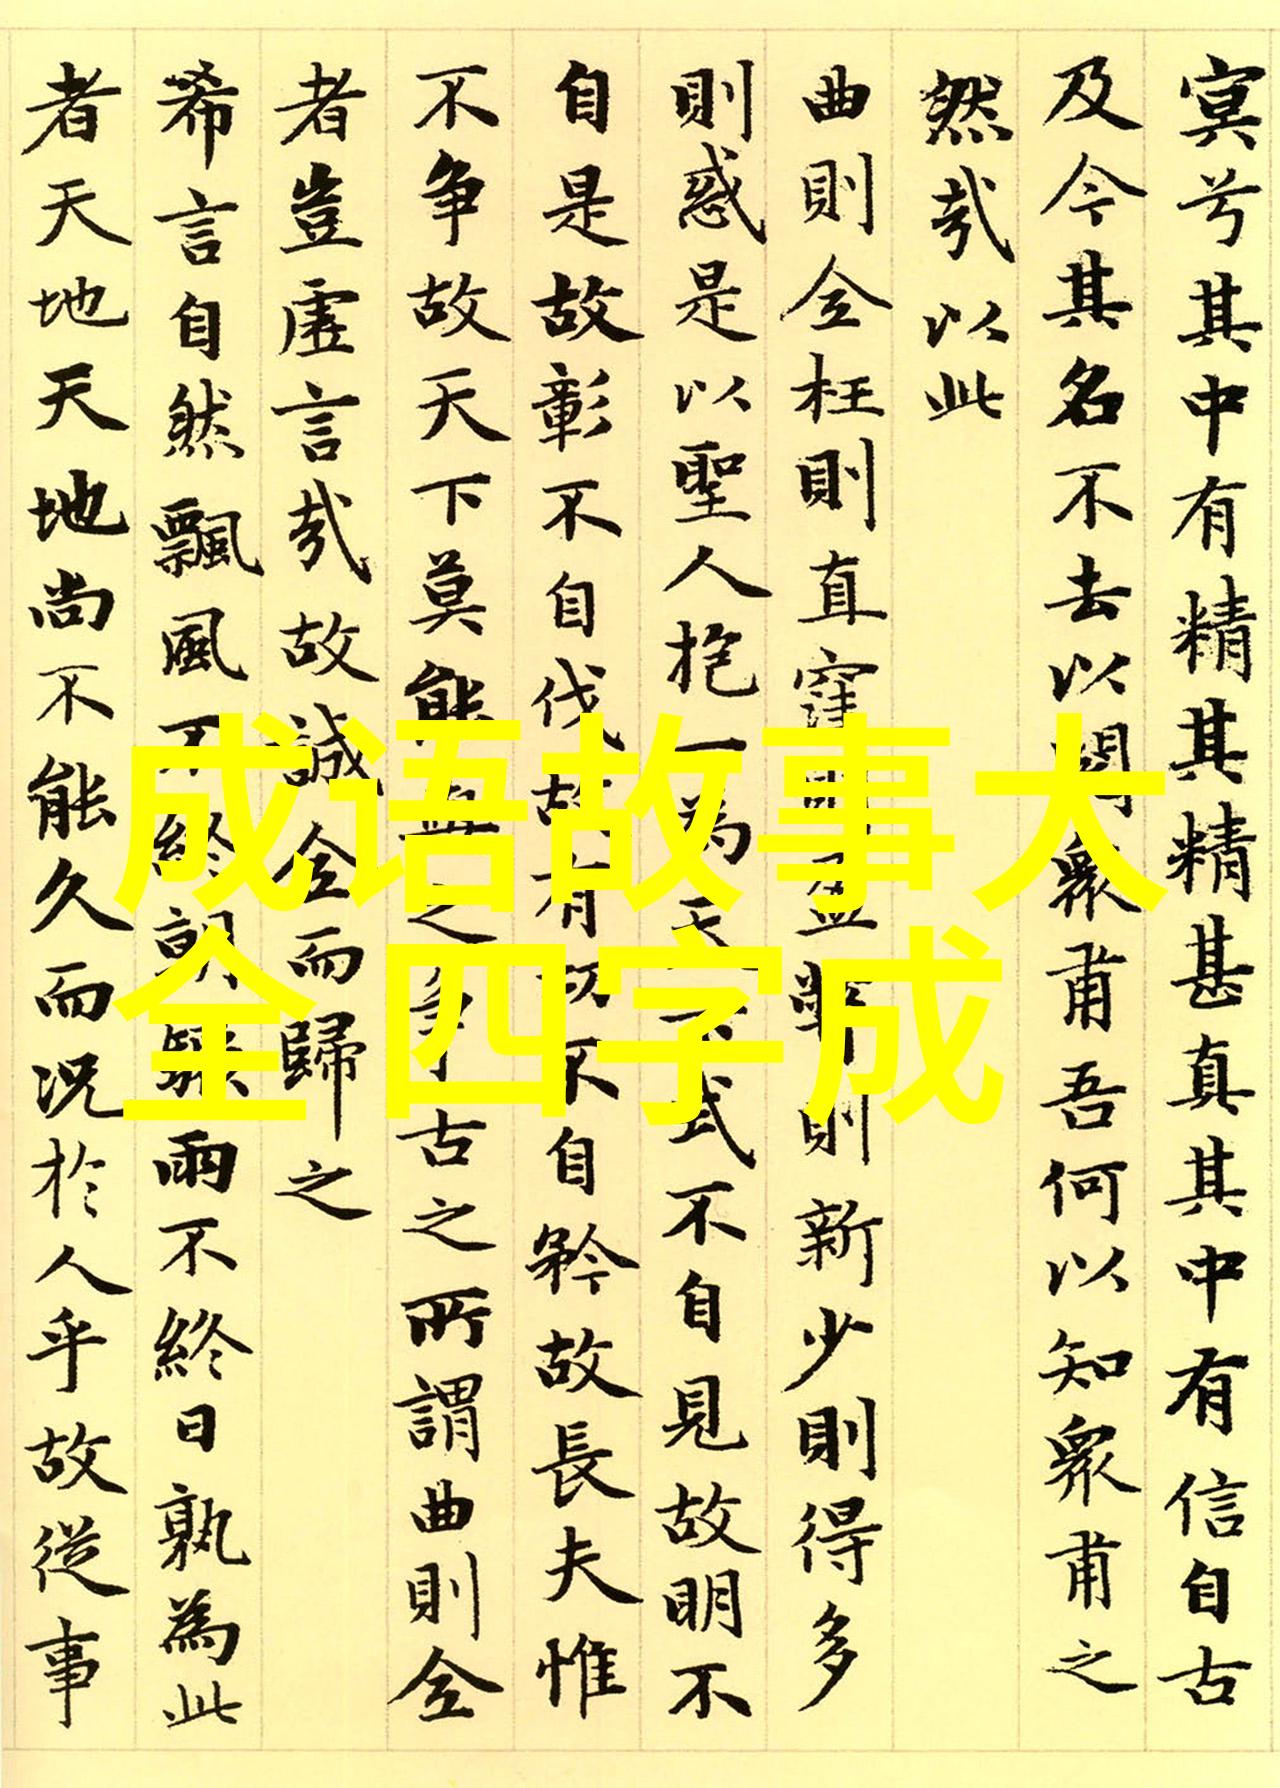 冥兮其中有精其精甚真其中有信自古
及今其名不去以閱衆甫吾何以知衆甫之
然哉以此
曲則全枉則直窪則盈弊則新少則得多
則惑是以聖人抱一為天下式不自見故明不
自是故彰不自伐故有功不自矜故長夫惟
不争故天下莫能與之争古之所謂曲則全
者豈虛言哉故誠全而歸之
希言自然飄風不終朝驟雨不終日孰為此
者天地天地尚不能久而况於人乎故從事
成语故事大
全 四字成